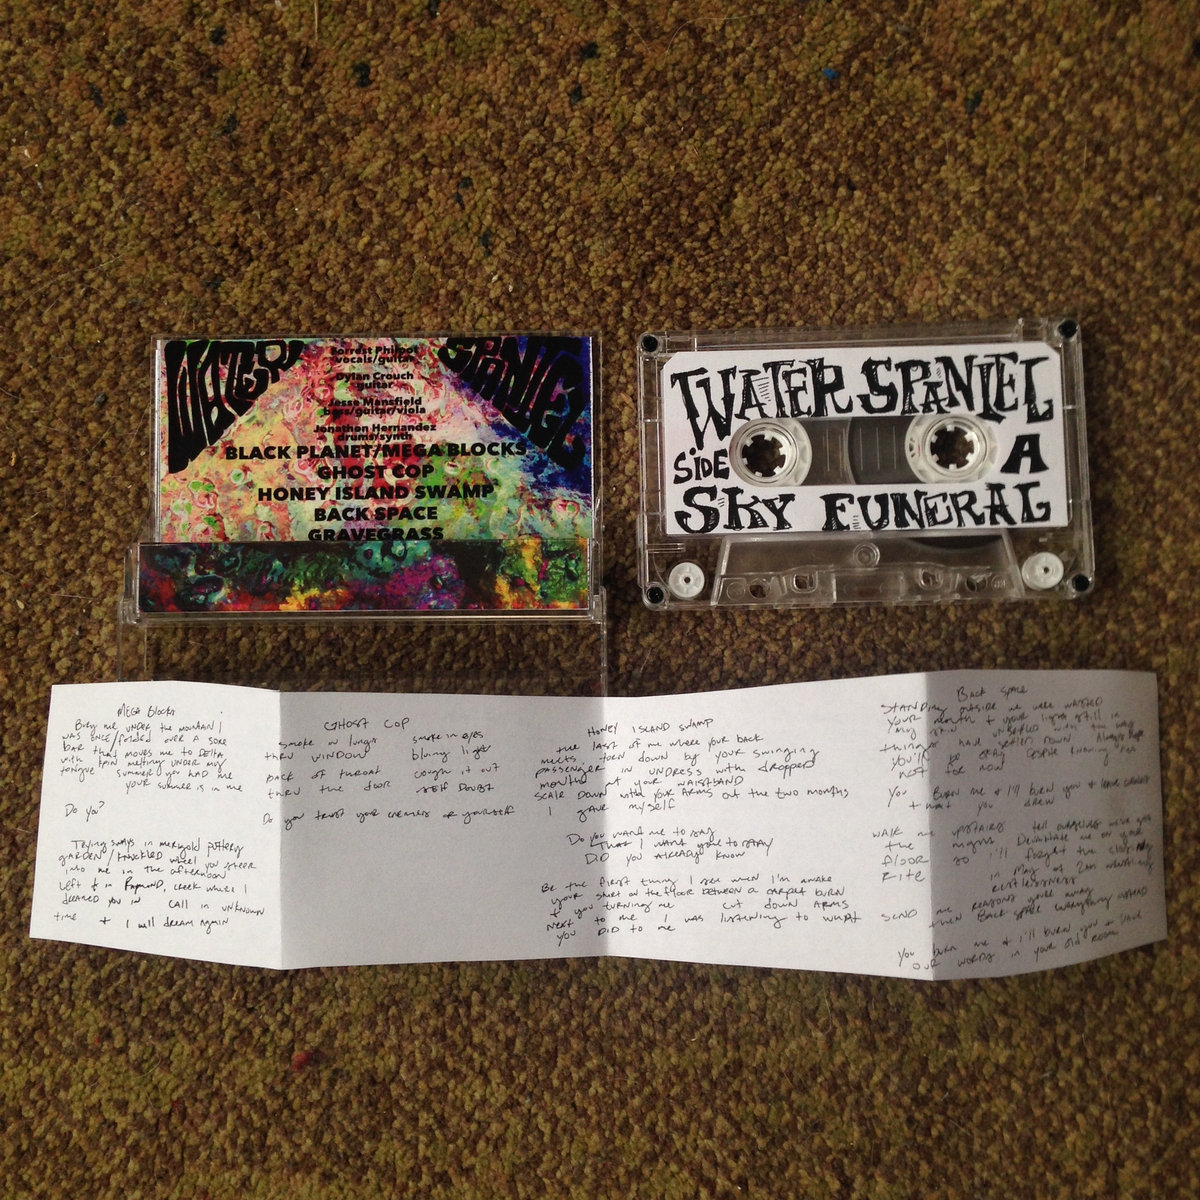 WATER SPANIEL
Forrest Philpot
vocals/guitar
Dylan Crouch
guitar
Jesse Mansfield
bass/guitar/viola
Jonathon Hernandez
drums/synth
BLACK PLANET/MEGA BLOCKS
GHOST COP
HONEY ISLAND SWAMP
BACK SPACE
GRAVEGRASS
WATER SPANIEL
SIDE A
SKY FUNERAL
MEGA BLOCKS
Bury me under the mountain I
was once/folded over a sore
bar that moves me to Delta
with spin melting under my
tongue summer you had me
your summer is in me
Do you?
Trying sways in marigold pottery
garden/knuckled wheel you steer
into me in the afternoon
Left & in Raymond, creek where I
dreamed you in call in unknown
time + I will dream again
GHOST COP
smoke in lungs smoke in eyes
thru window bluing light
back of throat cough it out
thru the door self doubt
Do you trust your enemies or yourself
HONEY ISLAND SWAMP
the last of me where your back
meets, torn down by your swinging
passenger in undress with dropped
mouth at your waistband
scale down with your arms out the two months
I gave myself
Do you want me to say
that I want you to stay
Did you already know
Be the first thing I see when I'm awake
your shirt on the floor between a carpet burn
& you turning me cut down arms
next to me I was listening to what
you did to me
BACK SPACE
Standing outside we were wasted
your mouth + your light still in
my skin
things have settled down Always hope
you'll be okay despite knowing
not for now
You burn me & I'll burn you & leave
+ what you drew
walk me upstairs tell ourselves we've
the night on your
floor so I'll forget the
rite in May of
restlessness
send me reasons you're away
then Back space everything instead
You burn me & I'll burn you + leave
our words in your old room